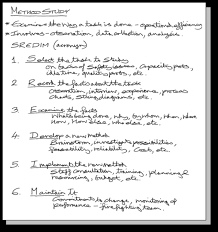 Method Study
* Examine the way a task is done - operational efficiency
* Involves - observation, data collection, analysis
SREDIM (acronym)
1. Select the task to study
on basis of Safety issues, Capacity probs,
idle time, quality probs, etc.
2. Record the facts about the task
Observation, interviews, experience, process
charts, string diagrams, etc
3. Examine the facts
What's being done, why, by whom, when, where
How, How else, who else, etc.
4. Develop a new method
Brainstorm, investigate possibilities,
feasibility, reliability, Cost, etc.
5. Implement the new method
Staff consultation, training, planning &
resourcing, budget, etc.
6. Maintain It
Commitment to change, monitoring of
performance - firefighting team.